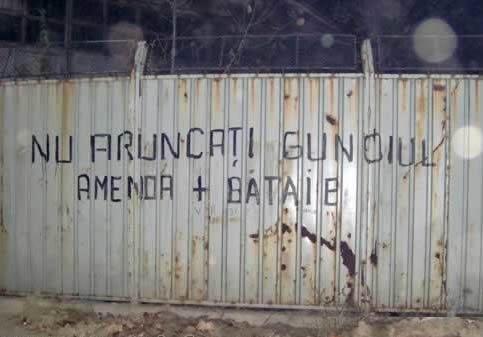 NU ARUNCAȚI GUNOIUL
AMENDA + BĂTAIE